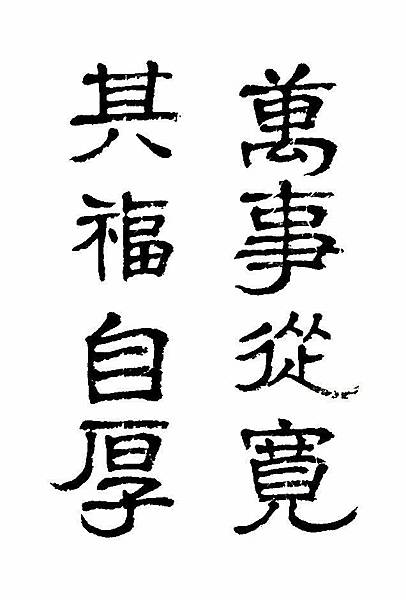 萬事從寬
其福自厚